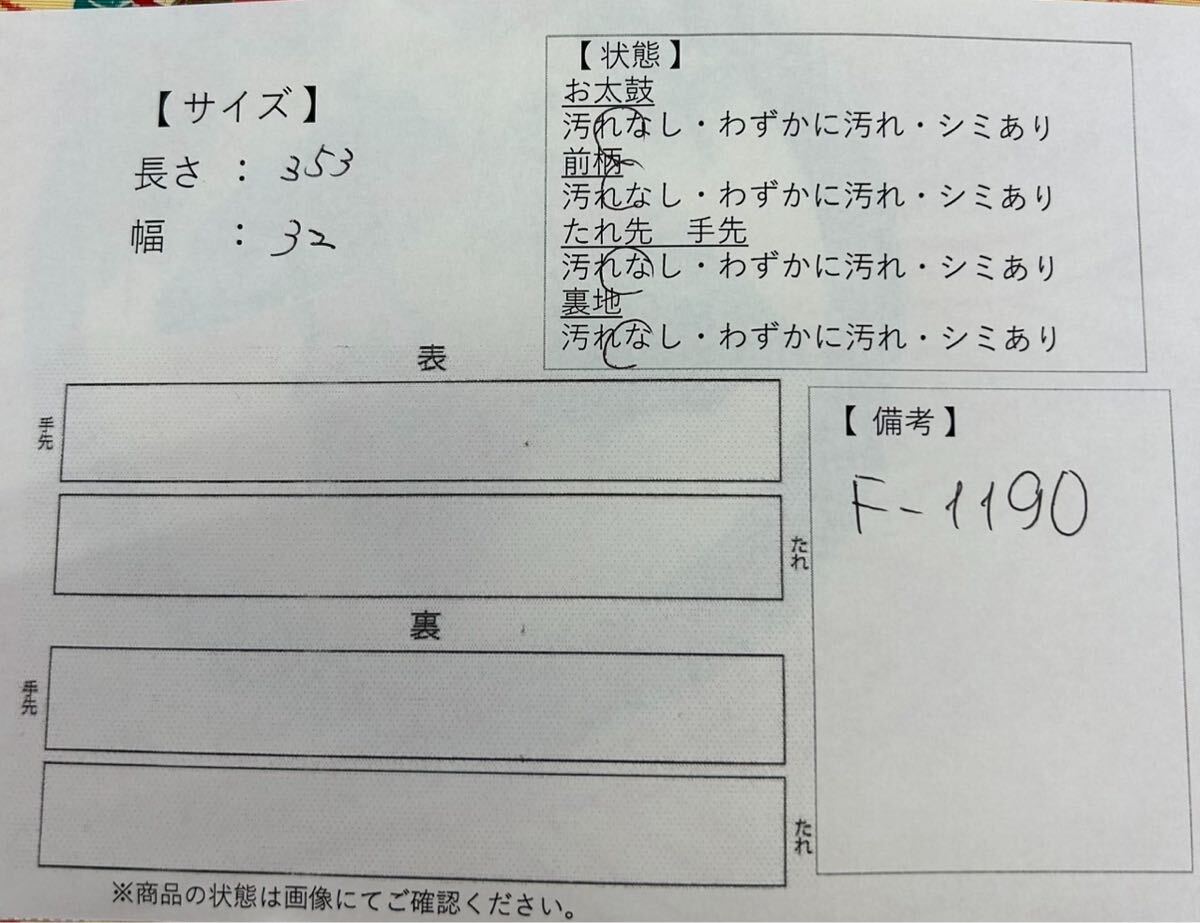 【サイズ】
長さ : 353
幅 : 32
【状態】
お太鼓
汚れなし・わずかに汚れ・シミあり
前柄
汚れなし・わずかに汚れ・シミあり
たれ先 手先
汚れなし・わずかに汚れ・シミあり
裏地
汚れなし・わずかに汚れ・シミあり
表
手先
たれ
裏
手先
たれ
【備考】
F-1190
※商品の状態は画像にてご確認ください。